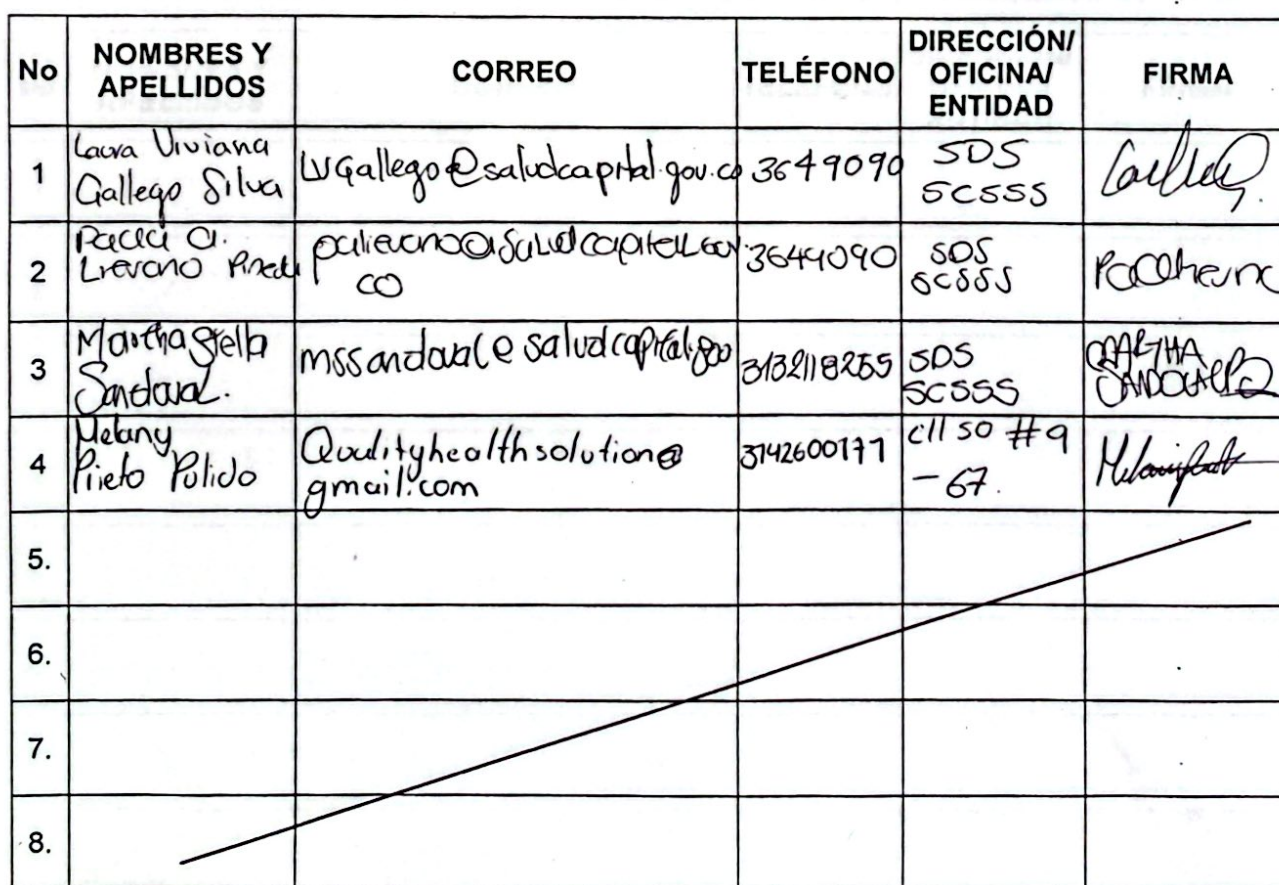 No NOMBRES Y APELLIDOS CORREO TELÉFONO DIRECCIÓN/ OFICINA/ ENTIDAD FIRMA
1 Laura Viviana Gallego Silva LVGallego@saludcapital.gov.co 3649090 SDS SCSSS
2 Paola A. Lievano Pineda palievano@saludcapital.gov.co 3649090 SDS SCSSS
3 Martha Stella Sandoval. mssandoval@saludcapital.gov 3132118255 SDS SCSSS MARTHA SANDOVAL
4 Melany Prieto Pulido Qualityhealthsolution@gmail.com 3142600177 cll 50 #9 - 67.
5.
6.
7.
8.